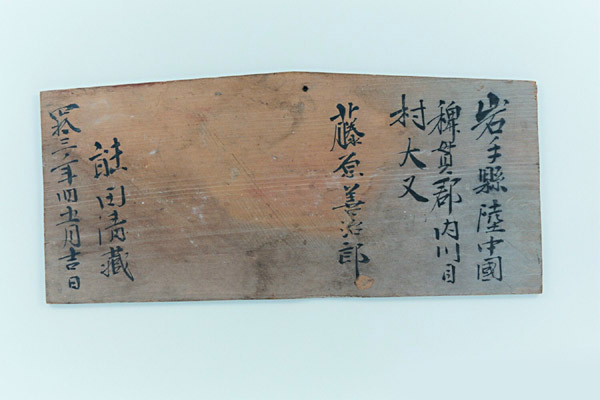 岩手縣陸中國
稗貫郡内川目
村大又
藤原善治郎
熊田清藏
四拾三年四五月吉日